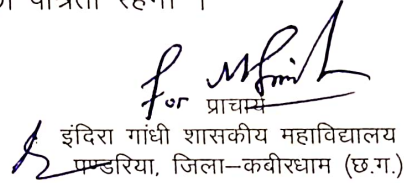 पात्रता रहेगी ।
For
प्राचार्य
इंदिरा गांधी शासकीय महाविद्यालय
पण्डरिया, जिला–कबीरधाम (छ.ग.)